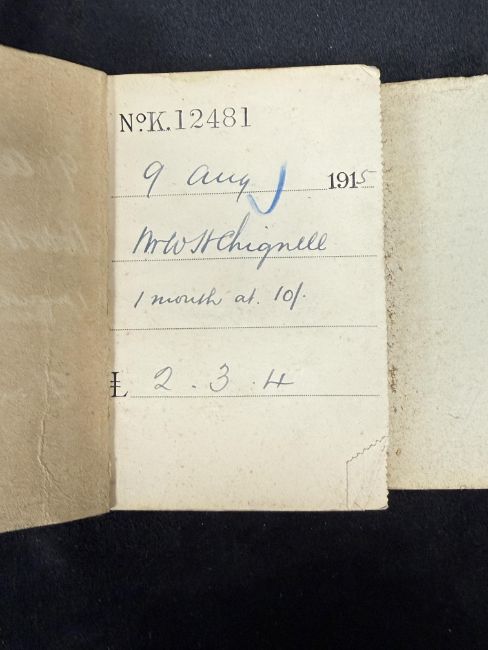 No K. 12481
9 Aug 1915
Mr W H Chignell
1 month at 10/-
£ 2 . 3 . 4